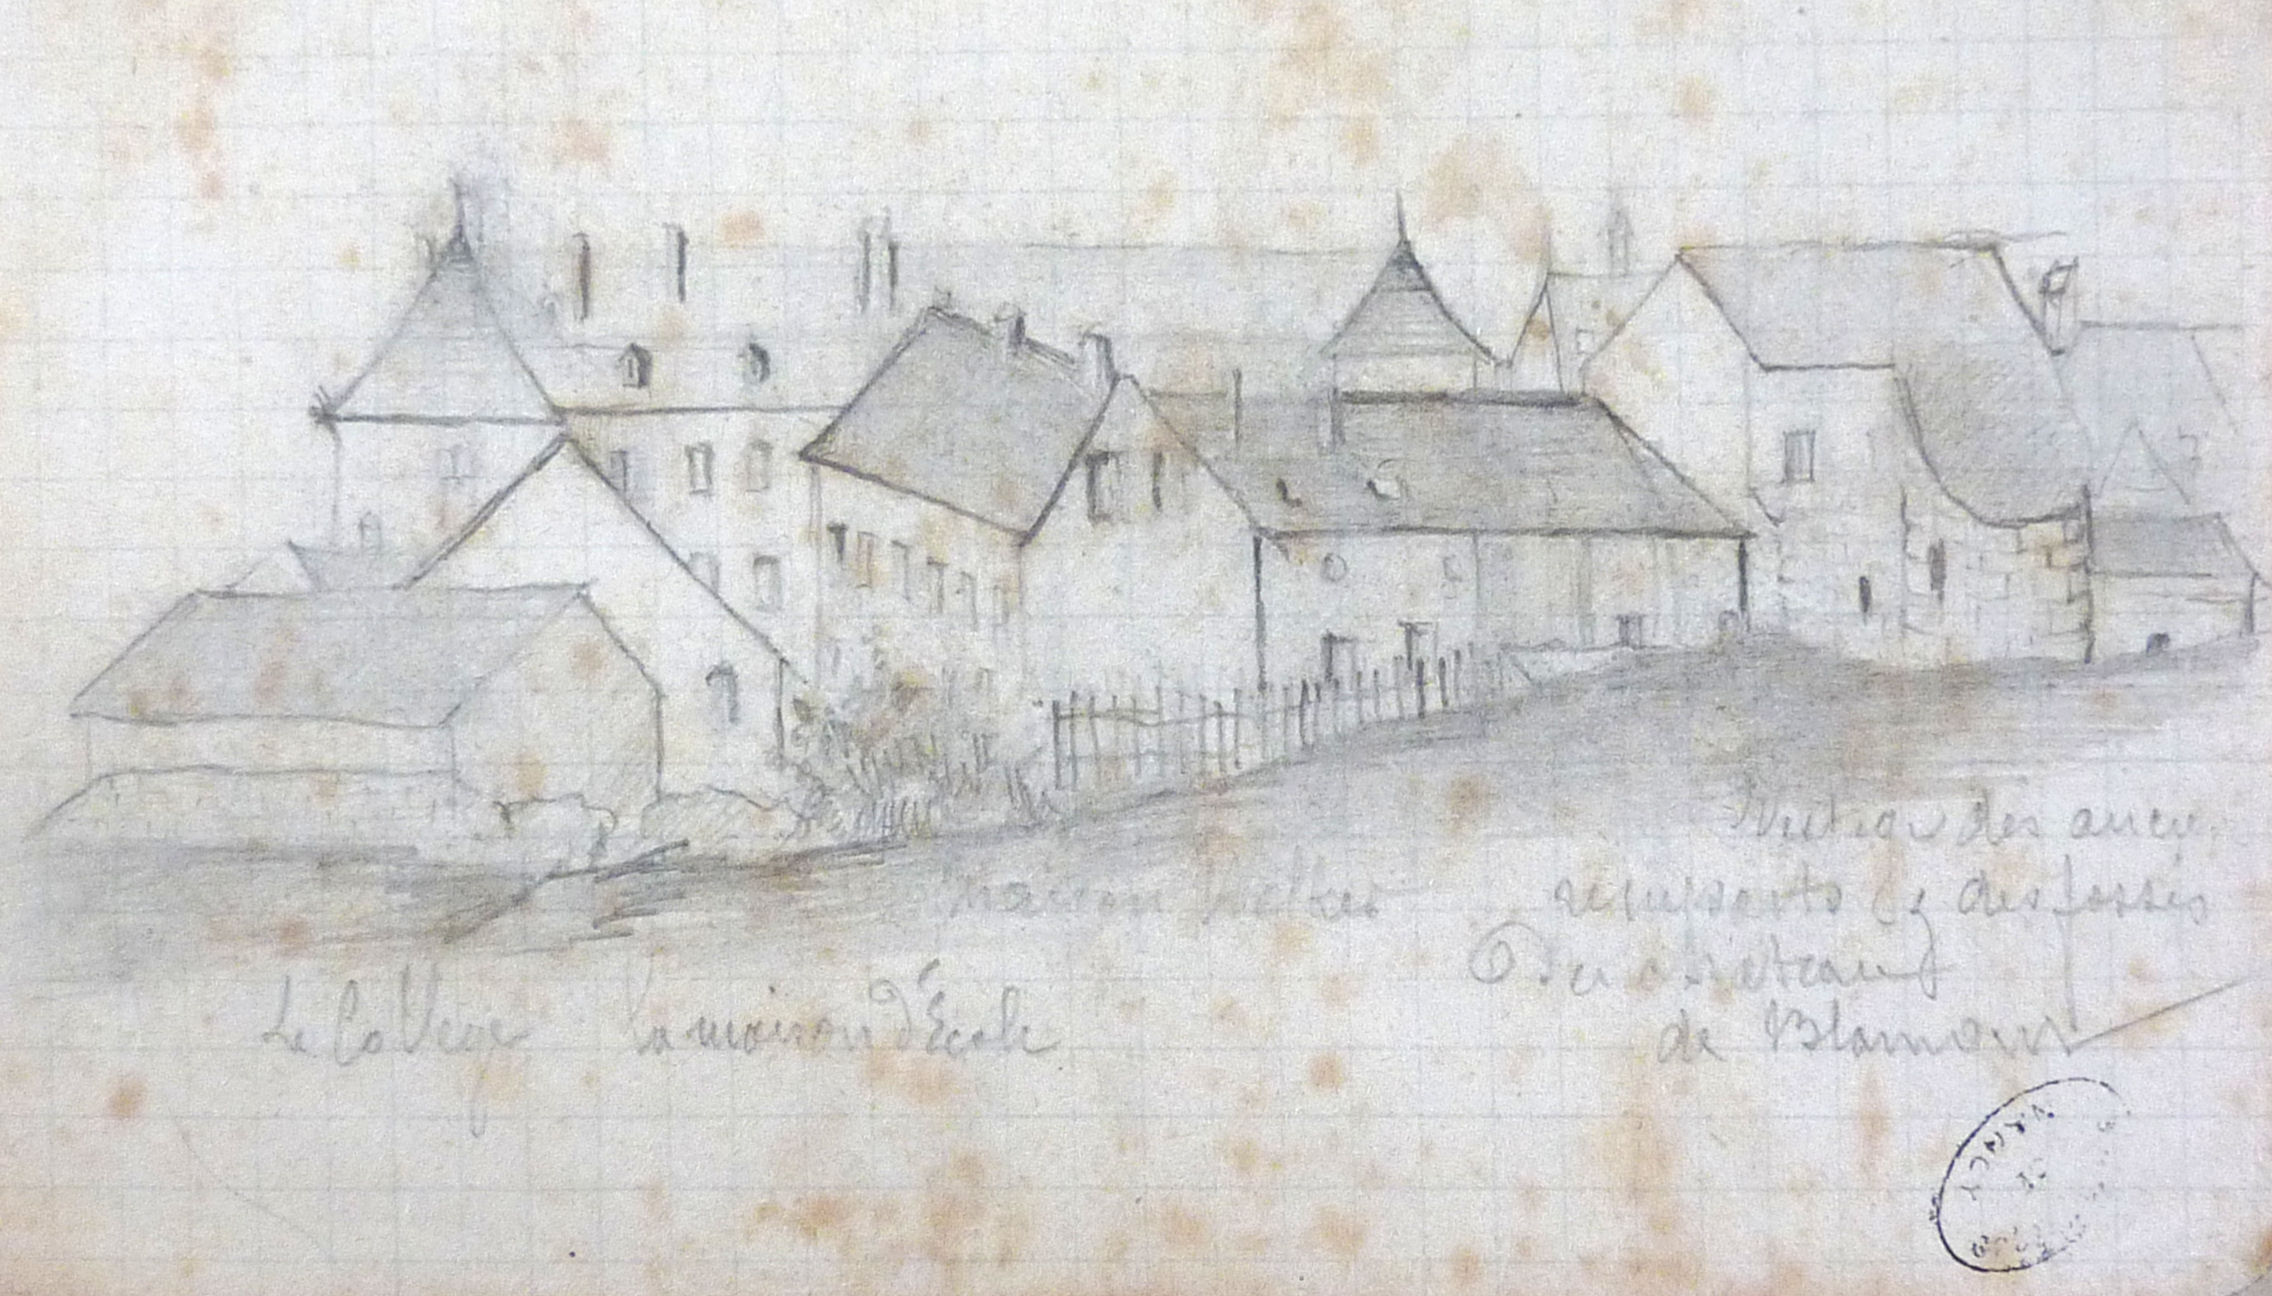 Vestige des anciens
remparts & des fossés
Du chateau
de Blamont
maison
Le College la maison d'École
NANCY